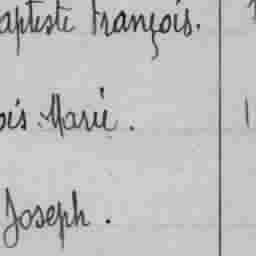 aptiste François.
ois Marie.
Joseph.